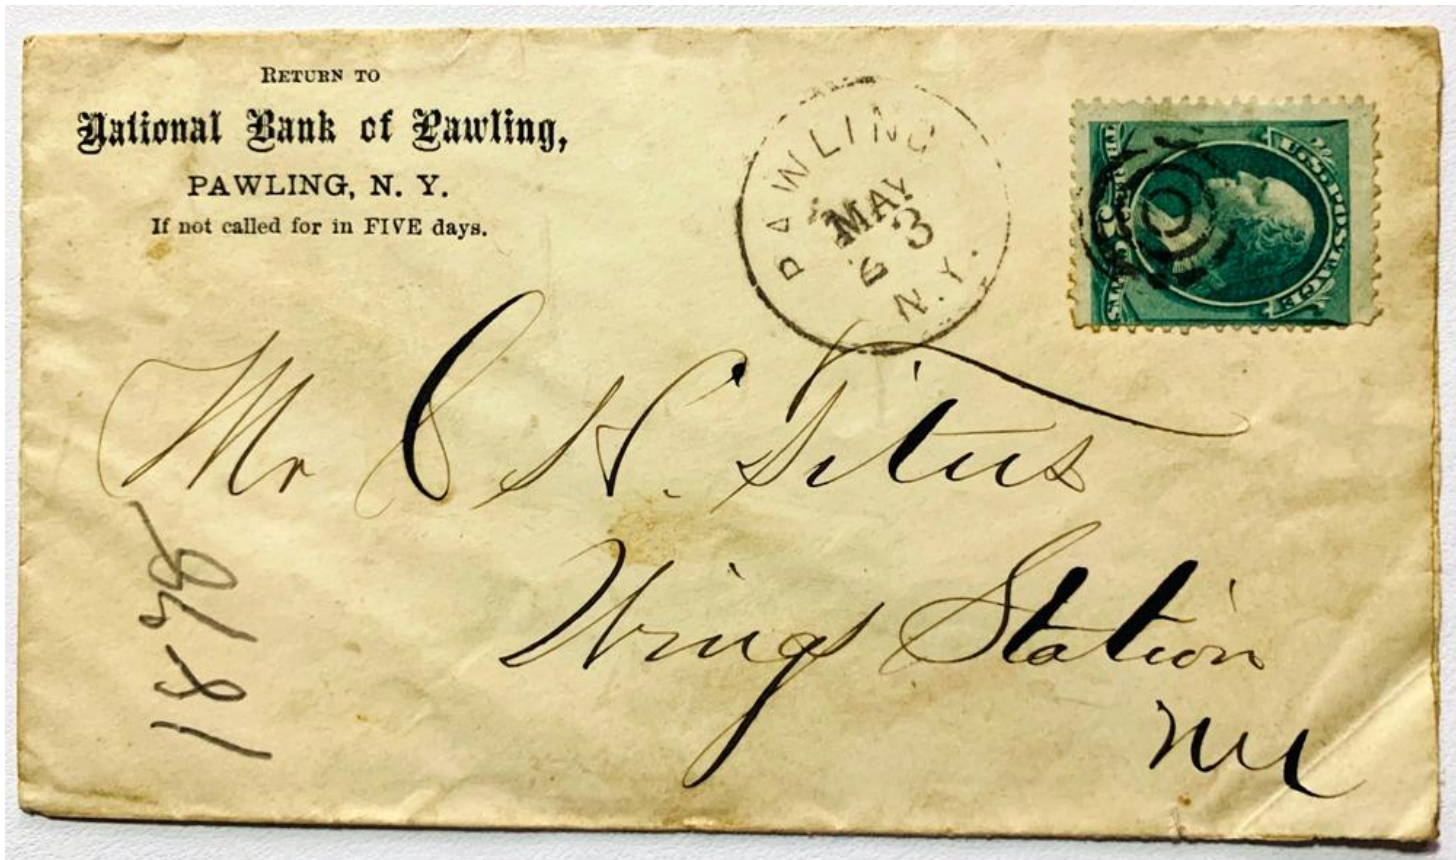 RETURN TO
National Bank of Pawling,
PAWLING, N. Y.
If not called for in FIVE days.
PAWLING
MAY
3
N.Y.
U.S. POSTAGE
Mr C H. Titus
Wings Station
1878